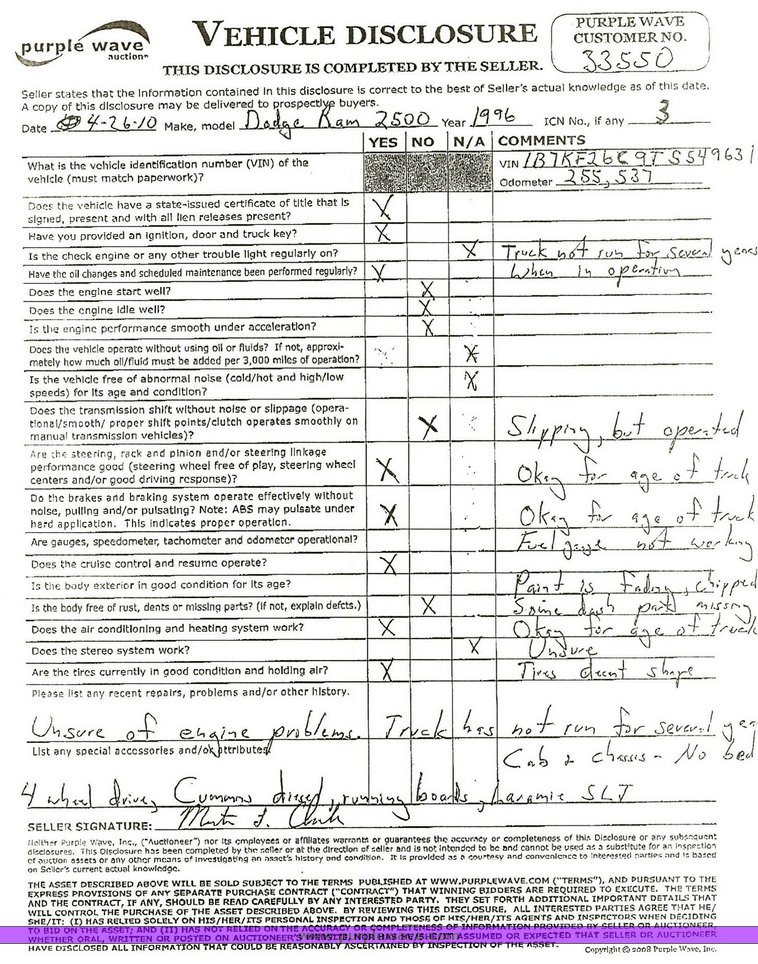 purple wave
auction
VEHICLE DISCLOSURE
THIS DISCLOSURE IS COMPLETED BY THE SELLER.
PURPLE WAVE
CUSTOMER NO.
33550
Seller states that the information contained in this disclosure is correct to the best of Seller's actual knowledge as of this date.
A copy of this disclosure may be delivered to prospective buyers.
Date 4-26-10 Make, model Dodge Ram 2500 Year 1996 ICN No., if any 3
YES NO N/A COMMENTS
What is the vehicle identification number (VIN) of the
vehicle (must match paperwork)?
VIN 1B7KF26C9TS549631
Odometer 255,537
Does the vehicle have a state-issued certificate of title that is
signed, present and with all lien releases present? X
Have you provided an ignition, door and truck key? X
Is the check engine or any other trouble light regularly on? X Truck not run for several years
Have the oil changes and scheduled maintenance been performed regularly? X When in operation
Does the engine start well? X
Does the engine idle well? X
Is the engine performance smooth under acceleration? X
Does the vehicle operate without using oil or fluids? If not, approxi-
mately how much oil/fluid must be added per 3,000 miles of operation? X
Is the vehicle free of abnormal noise (cold/hot and high/low
speeds) for its age and condition? X
Does the transmission shift without noise or slippage (opera-
tional/smooth/ proper shift points/clutch operates smoothly on
manual transmission vehicles)? X Slipping, but operated
Are the steering, rack and pinion and/or steering linkage
performance good (steering wheel free of play, steering wheel
centers and/or good driving response)? X Okay for age of truck
Do the brakes and braking system operate effectively without
noise, pulling and/or pulsating? Note: ABS may pulsate under
hard application. This indicates proper operation. X Okay for age of truck
Are gauges, speedometer, tachometer and odometer operational? Fuel gauge not working
Does the cruise control and resume operate? X
Is the body exterior in good condition for its age? Paint is fading, chipped
Is the body free of rust, dents or missing parts? (if not, explain defcts.) X Some dash part missing
Does the air conditioning and heating system work? X Okay for age of truck
Does the stereo system work? X Unsure
Are the tires currently in good condition and holding air? X Tires decent shape
Please list any recent repairs, problems and/or other history.
Unsure of engine problems. Truck has not run for several yea
List any special accessories and/or attributes
Cab & chassis - No bed
4 wheel drive, Cummins diesel, running boards, Laramie SLT
SELLER SIGNATURE:
Neither Purple Wave, Inc., ("Auctioneer") nor its employees or affiliates warrants or guarantees the accuracy or completeness of this Disclosure or any subsequent
disclosures. This Disclosure has been completed by the seller or at the direction of seller and is not intended to be and cannot be used as a substitute for an inspection
of auction assets or any other means of investigating an asset's history and condition. It is provided as a courtesy and convenience to interested parties and is based
on Seller's current actual knowledge.
THE ASSET DESCRIBED ABOVE WILL BE SOLD SUBJECT TO THE TERMS PUBLISHED AT WWW.PURPLEWAVE.COM ("TERMS"), AND PURSUANT TO THE
EXPRESS PROVISIONS OF ANY SEPARATE PURCHASE CONTRACT ("CONTRACT") THAT WINNING BIDDERS ARE REQUIRED TO EXECUTE. THE TERMS
AND THE CONTRACT, IF ANY, SHOULD BE READ CAREFULLY BY ANY INTERESTED PARTY. THEY SET FORTH ADDITIONAL IMPORTANT DETAILS THAT
WILL CONTROL THE PURCHASE OF THE ASSET DESCRIBED ABOVE. BY REVIEWING THIS DISCLOSURE, ALL INTERESTED PARTIES AGREE THAT HE/
SHE/IT: (I) HAS RELIED SOLELY ON HIS/HER/ITS PERSONAL INSPECTION AND THOSE OF HIS/HER/ITS AGENTS AND INSPECTORS WHEN DECIDING
TO BID ON THE ASSET; AND (II) HAS NOT RELIED ON THE ACCURACY OR COMPLETENESS OF INFORMATION PROVIDED BY SELLER OR AUCTIONEER,
WHETHER ORAL, WRITTEN OR POSTED ON AUCTIONEER'S WEBSITE, NOR HAS HE/SHE/IT ASSUMED OR EXPECTED THAT SELLER OR AUCTIONEER
HAVE DISCLOSED ALL INFORMATION THAT COULD BE REASONABLY ASCERTAINED BY INSPECTION OF THE ASSET.
Copyright © 2008 Purple Wave, Inc.